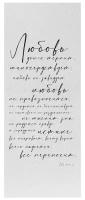 Любовь
долго терпит,
милосердствует,
любовь не завидует
любовь
не превозносится
не гордится, не бесчинствует
не ищет своего
не раздражается
не мыслит зла
не радуется неправде
а сорадуется
истине
все покрывает, всему верит
всего надеется,
все переносит.